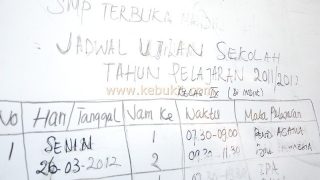 SMP TERBUKA
JADWAL UJIAN SEKOLAH
TAHUN PELAJARAN 2011/2012
KELAS IX (DI INDUK)
No Hari/Tanggal Jam Ke Waktu Mata Pelajaran
1 SENIN 1 07.30-09.00 Pend. AGAMA
26-03-2012 2
IPA